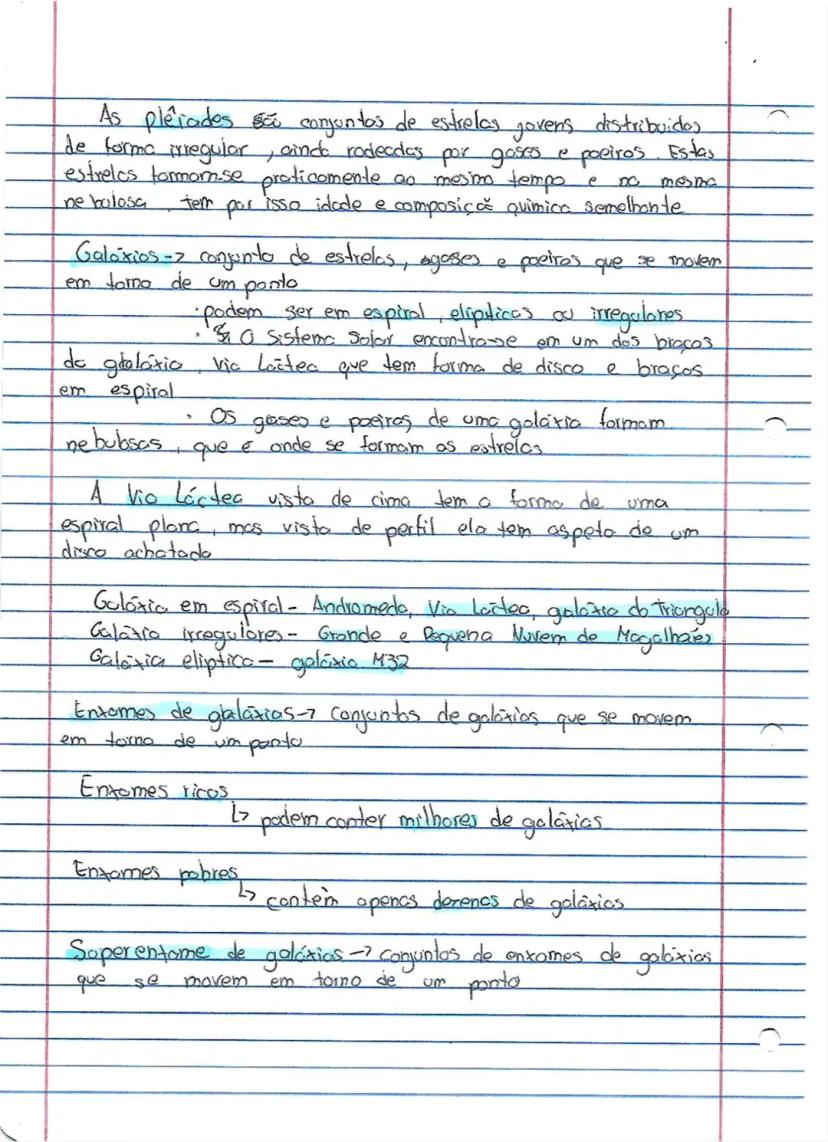 As plêiades são conjuntos de estrelas jovens distribuidas
de forma irregular, ainda rodeadas por gases e poeiras. Estas
estrelas formam-se praticamente ao mesmo tempo e na mesma
nebulosa, tem por isso idade e composição quimica semelhante
Galáxias -> conjunto de estrelas, gases e poeiras que se movem
em torno de um ponto
· podem ser em espiral, elipticas ou irregulares
· O Sistema Solar encontra-se em um dos braços
da galáxia, Via Láctea que tem forma de disco e braços
em espiral
· Os gases e poeiras de uma galáxia formam
nebulosas, que é onde se formam as estrelas
A Via Láctea vista de cima tem a forma de uma
espiral plana, mas vista de perfil ela tem aspeto de um
disco achatado
Galáxia em espiral - Andromeda, Via Láctea, galáxia do Triangulo
Galáxia irregulares - Grande e Pequena Nuvem de Magalhães
Galáxia eliptica - galáxia M32
Enxames de galáxias -> conjuntos de galáxias que se movem
em torno de um ponto
Enxames ricos
↳ podem conter milhares de galáxias
Enxames pobres
↳ contêm apenas dezenas de galáxias
Superenxame de galáxias -> conjuntos de enxames de galáxias
que se movem em torno de um ponto